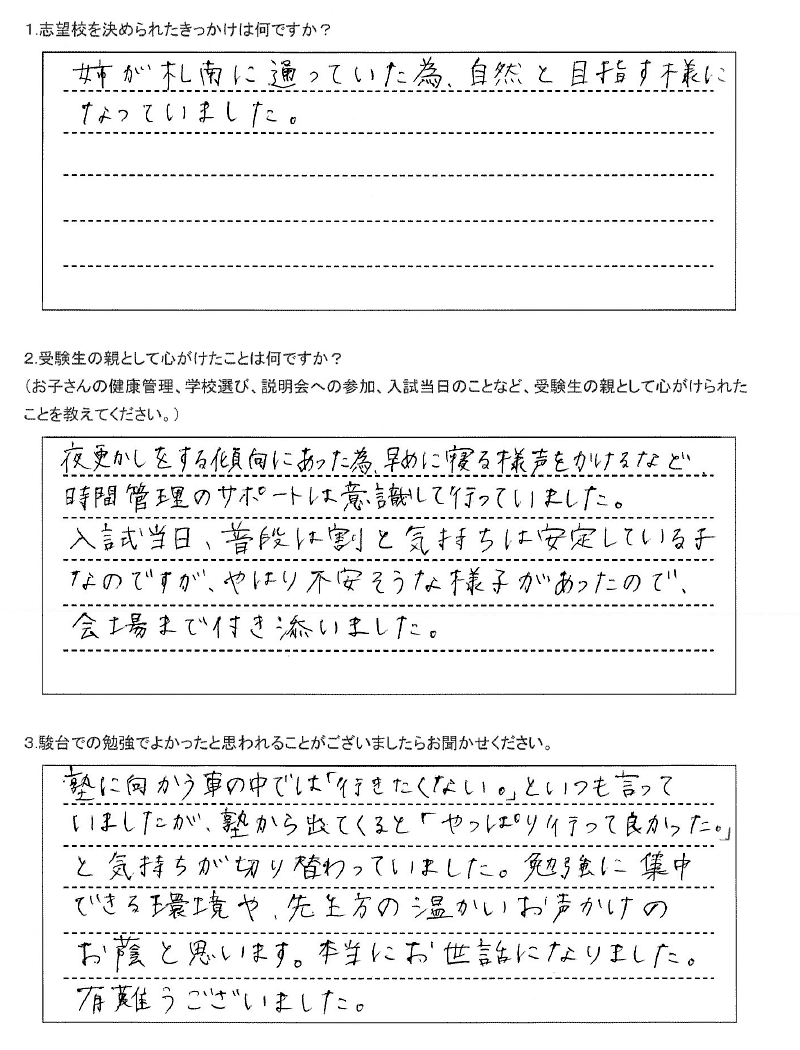 1.志望校を決められたきっかけは何ですか？
姉が札南に通っていた為、自然と目指す様に
なっていました。
2.受験生の親として心がけたことは何ですか？
（お子さんの健康管理、学校選び、説明会への参加、入試当日のことなど、受験生の親として心がけられた
ことを教えてください。）
夜更かしをする傾向にあった為、早めに寝る様声をかけるなど、
時間管理のサポートは意識して行っていました。
入試当日、普段は割と気持ちは安定している子
なのですが、やはり不安そうな様子があったので、
会場まで付き添いました。
3.駿台での勉強でよかったと思われることがございましたらお聞かせください。
塾に向かう車の中では「行きたくない。」といつも言って
いましたが、塾から出てくると「やっぱり行って良かった。」
と気持ちが切り替わっていました。勉強に集中
できる環境や、先生方の温かいお声かけの
お蔭と思います。本当にお世話になりました。
有難うございました。